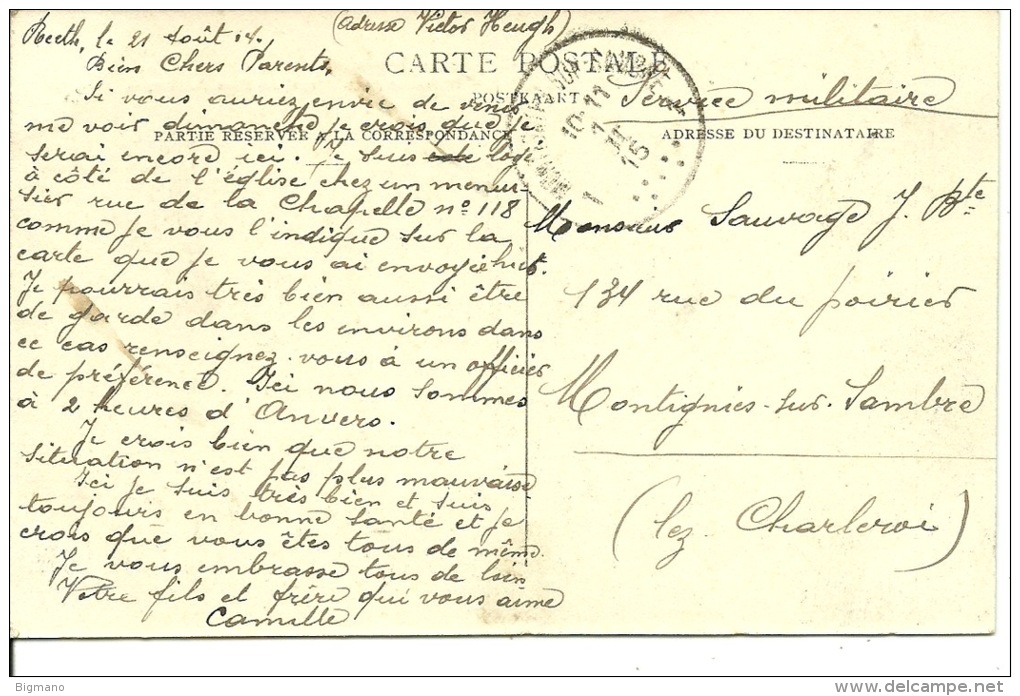 Reeth, le 21 Août 14.
(Adresse Victor Heugh)
Bien Chers Parents,
CARTE POSTALE
POSTKAART
PARTIE RÉSERVÉE A LA CORRESPONDANCE
ADRESSE DU DESTINATAIRE
Si vous auriez envie de venir
me voir dimanche je crois que je
serai encore ici. Je suis loge
à côté de l'église chez un menui-
sier rue de la Chapelle n° 118
comme je vous l'indique sur la
carte que je vous ai envoyé
Je pourrais très bien aussi être
de garde dans les environs dans
ce cas renseignez-vous à un officier
de préférence. Ici nous sommes
à 2 heures d'Anvers.
Je crois bien que notre
situation n'est pas plus mauvaise
Ici je suis très bien et suis
toujours en bonne santé et je
crois que vous êtes tous de même.
Je vous embrasse tous de loin
Votre fils et frère qui vous aime
Camille
Service militaire
10-11
1
15
Monsieur Sauvage J. Bte
134 rue du poirier
Montignies-sur-Sambre
(lez Charleroi)
Bigmano
http://www.delcampe.net